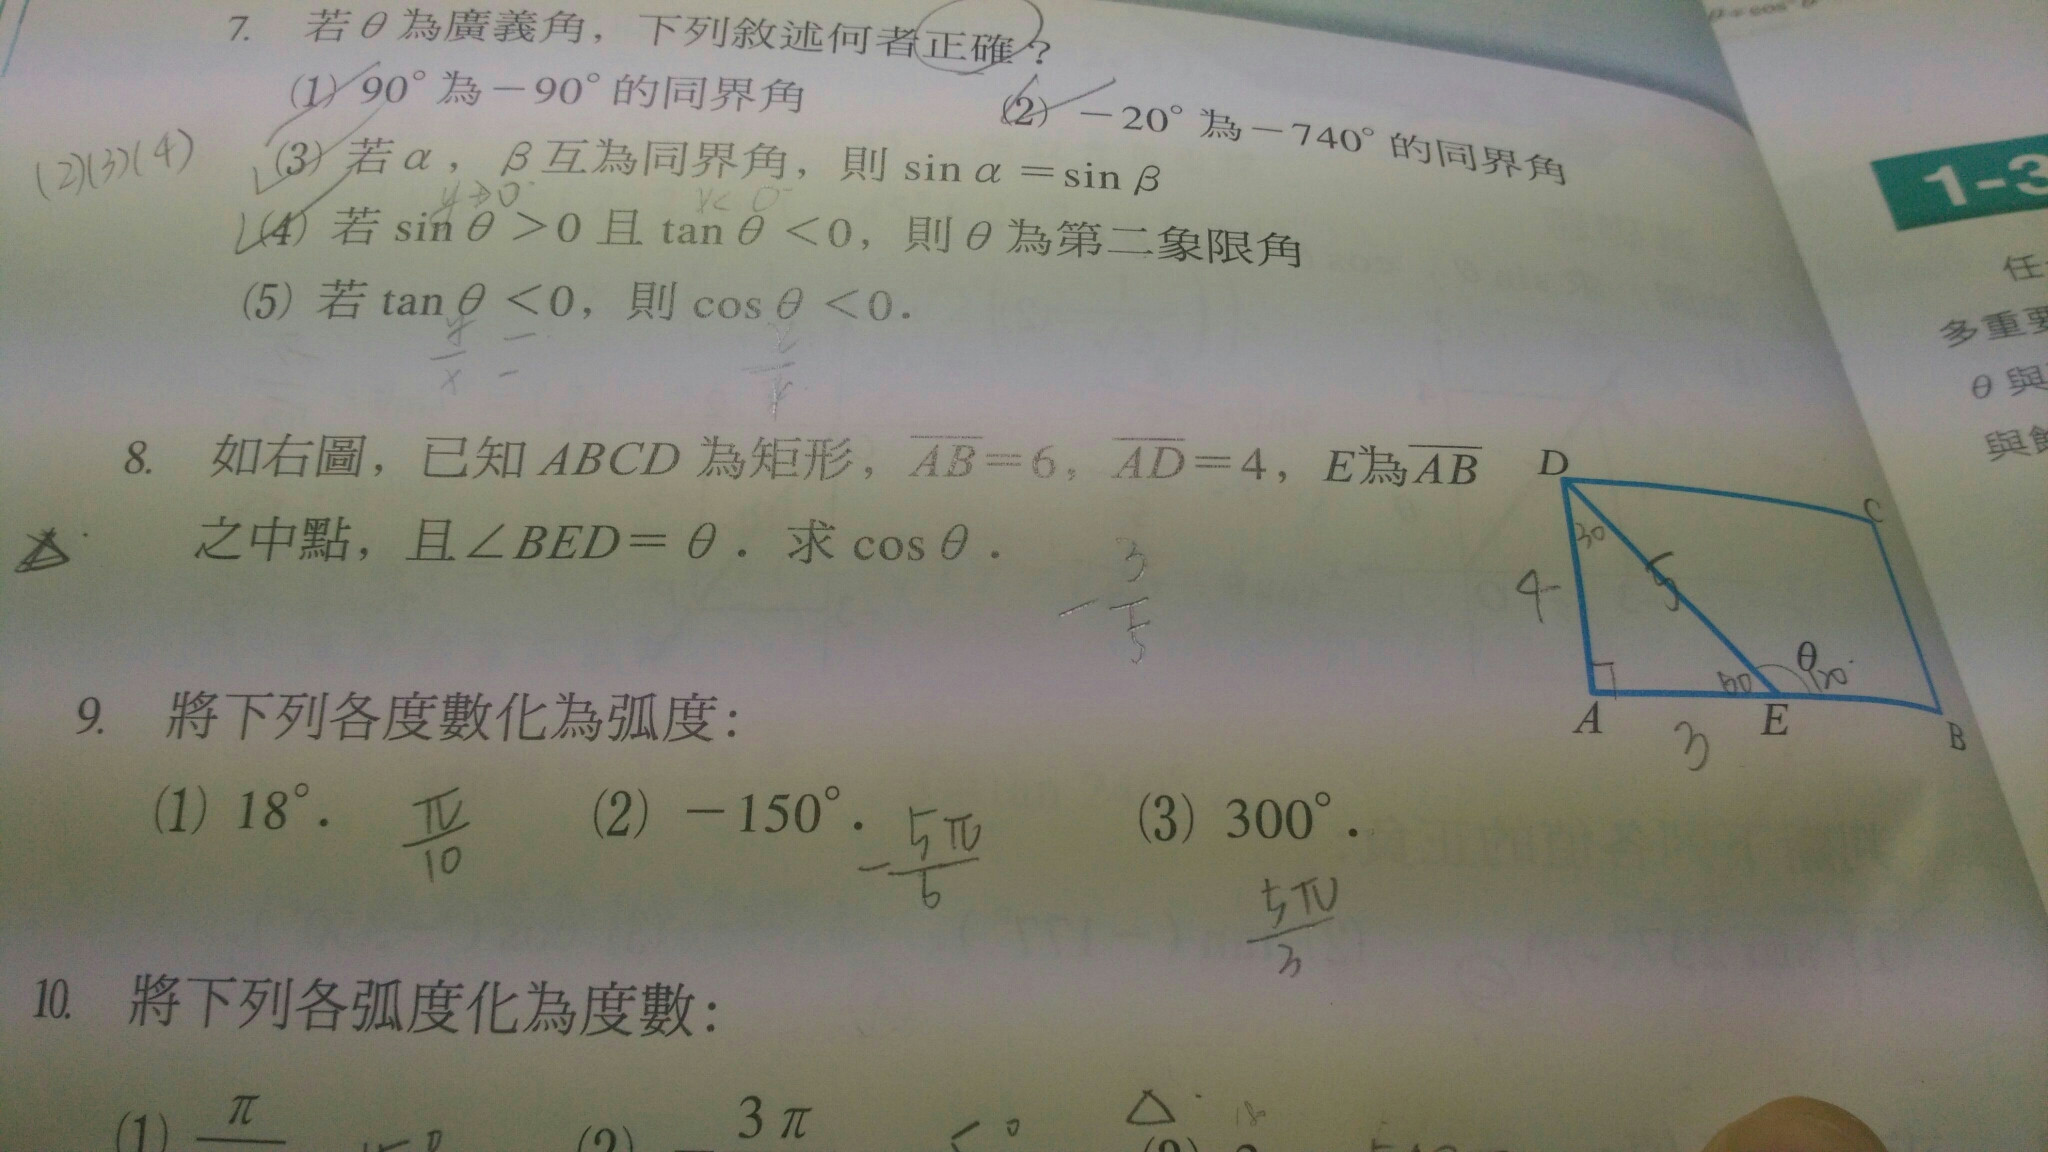 7. 若θ為廣義角，下列敘述何者正確？
(1) 90°為－90°的同界角 (2) －20°為－740°的同界角
(2)(3)(4)
(3) 若α，β互為同界角，則 sin α＝sin β
(4) 若 sin θ＞0 且 tan θ＜0，則θ為第二象限角
(5) 若 tan θ＜0，則 cos θ＜0．
y/x
8. 如右圖，已知ABCD為矩形，AB＝6，AD＝4，E為AB
之中點，且∠BED＝θ．求 cos θ．
－3/5
D
C
30
4
5
θ
A
3
E
B
9. 將下列各度數化為弧度：
(1) 18°． π/10 (2) －150°． －5π/6 (3) 300°． 5π/3
10. 將下列各弧度化為度數：
(1) π (2) － 3π
1-3
任
多重要
θ與
與